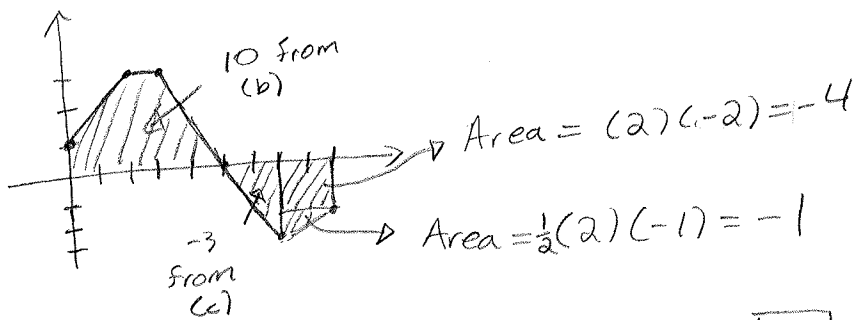 10 from
(b)
Area = (2)(-2) = -4
Area = ½(2)(-1) = -1
-3
from
(c)